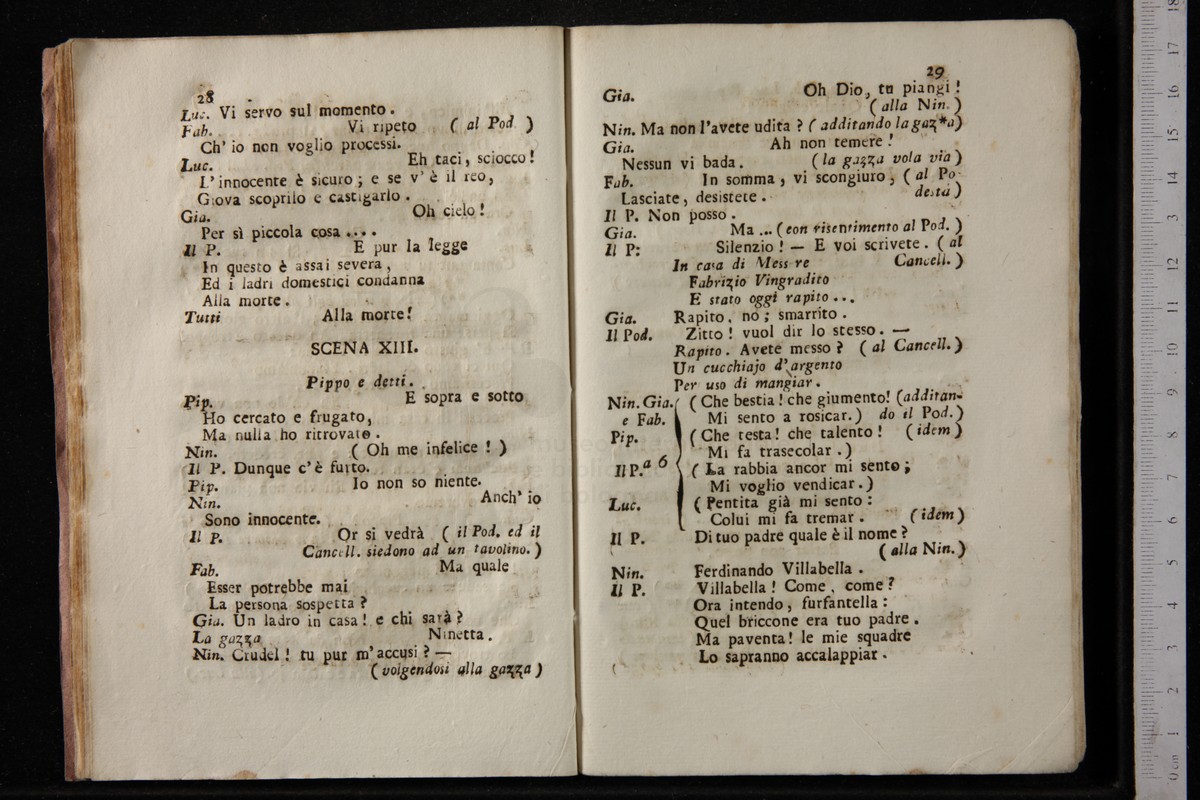 28
Luc. Vi servo sul momento.
Fab. Vi ripeto ( al Pod. )
Ch' io non voglio processi.
Luc. Eh taci, sciocco!
L' innocente è sicuro; e se v' è il reo,
Giova scoprilo e castigarlo.
Gia. Oh cielo!
Per sì piccola cosa ....
Il P. E pur la legge
In questo è assai severa,
Ed i ladri domestici condanna
Alla morte.
Tutti Alla morte!
SCENA XIII.
Pippo e detti.
Pip. E sopra e sotto
Ho cercato e frugato,
Ma nulla ho ritrovato.
Nin. ( Oh me infelice! )
Il P. Dunque c' è furto.
Pip. Io non so niente.
Nin. Anch' io
Sono innocente.
Il P. Or si vedrà ( il Pod. ed il
Cancell. siedono ad un tavolino. )
Fab. Ma quale
Esser potrebbe mai
La persona sospetta?
Gia. Un ladro in casa! e chi sarà?
La gazza Ninetta.
Nin. Crudel! tu pur m' accusi? —
( volgendosi alla gazza )
29
Gia. Oh Dio, tu piangi!
( alla Nin. )
Nin. Ma non l'avete udita? ( additando la gaz*a)
Gia. Ah non temere!
Nessun vi bada. ( la gazza vola via )
Fab. In somma, vi scongiuro, ( al Po-
Lasciate, desistete. destà )
Il P. Non posso.
Gia. Ma ... ( con risentimento al Pod. )
Il P: Silenzio! — E voi scrivete. ( al
In casa di Messere Cancell. )
Fabrizio Vingradito
E stato oggi rapito ...
Gia. Rapito, no; smarrito.
Il Pod. Zitto! vuol dir lo stesso. —
Rapito. Avete messo? ( al Cancell. )
Un cucchiajo d' argento
Per uso di mangiar.
Nin. Gia. ( Che bestia! che giumento! (additan-
e Fab. Mi sento a rosicar.) do il Pod.)
Pip. ( Che testa! che talento! ( idem )
Mi fa trasecolar.)
Il P. a 6 ( La rabbia ancor mi sento;
Mi voglio vendicar.)
Luc. ( Pentita già mi sento:
Colui mi fa tremar. ( idem )
Il P. Di tuo padre quale è il nome?
( alla Nin. )
Nin. Ferdinando Villabella.
Il P. Villabella! Come, come?
Ora intendo, furfantella:
Quel briccone era tuo padre.
Ma paventa! le mie squadre
Lo sapranno accalappiar.